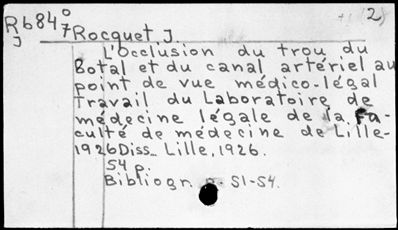 R6840 2)
J 7 Rocquet, J.
L'Occlusion du trou du
Botal et du canal artériel au
point de vue médico-légal
Travail du Laboratoire de
médecine légale de la Fa-
culté de médecine de Lille-
1926 Diss_ Lille, 1926.
54 p.
Bibliogr. p. 51-54.